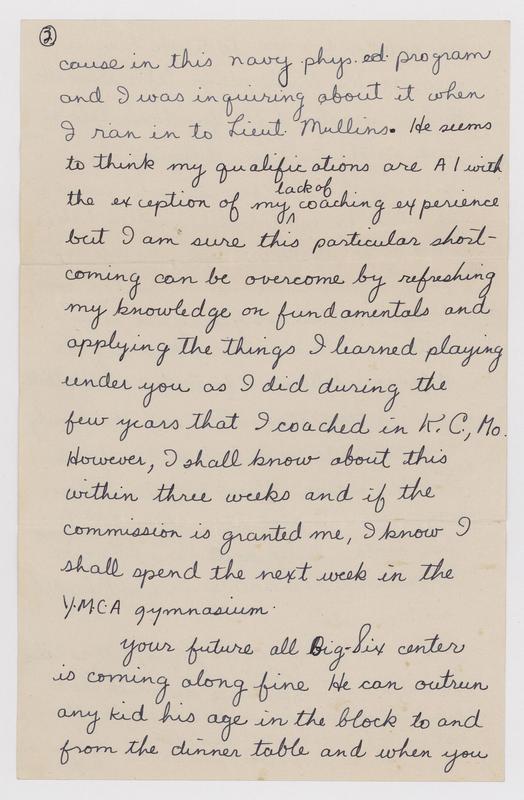 2
cause in this navy phys. ed. program
and I was inquiring about it when
I ran in to Lieut. Mullins. He seems
to think my qualifications are A1 with
lack of
the exception of my ^ coaching experience
but I am sure this particular short-
coming can be overcome by refreshing
my knowledge on fundamentals and
applying the things I learned playing
under you as I did during the
few years that I coached in K.C., Mo.
However, I shall know about this
within three weeks and if the
commission is granted me, I know I
shall spend the next week in the
Y.M.C.A gymnasium.
Your future all Big-Six center
is coming along fine He can outrun
any kid his age in the block to and
from the dinner table and when you